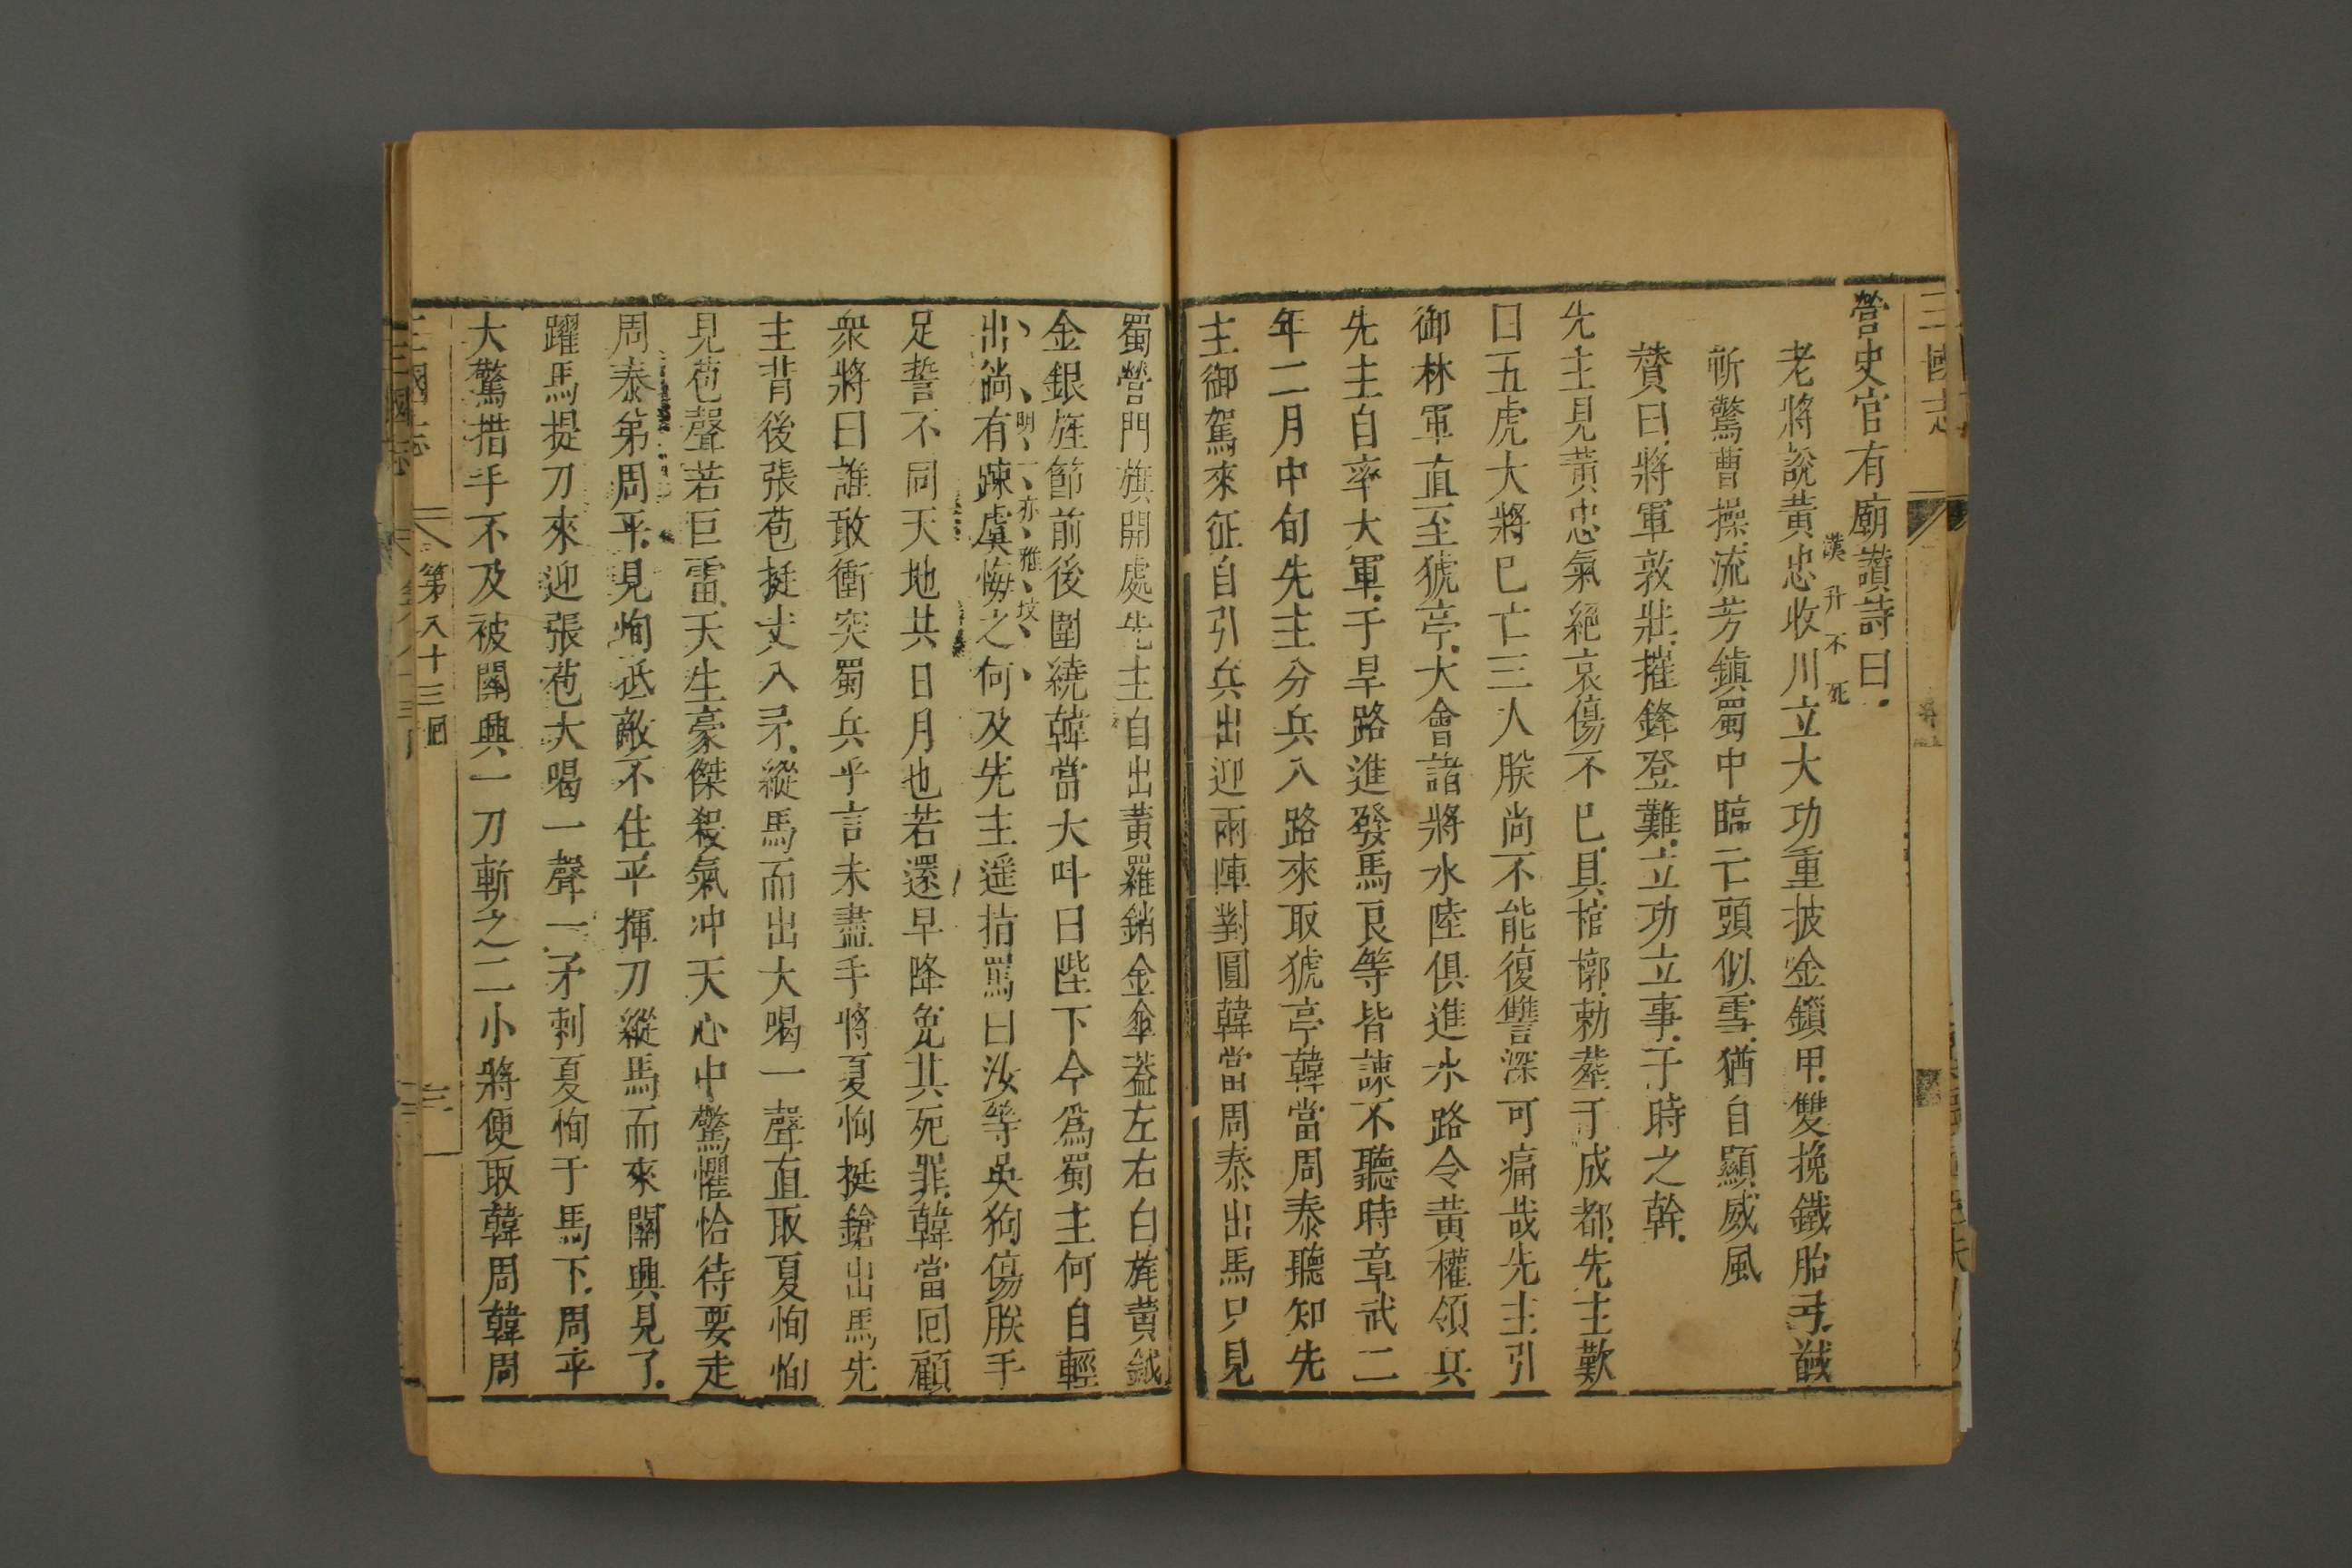 三國志
營史官有廟讃詩曰
老將說黃忠收川立大功重披金鎖甲雙挽鐵胎弓
漢升不死
驚曹操流芳鎮蜀中臨亡頭似雪猶自顯威風
贊曰將軍敦壯摧鋒登難立功立事于時之幹
先主見黃忠氣絕哀傷不已具棺槨勅葬于成都先主歎
曰五虎大將已亡三人朕尚不能復讐深可痛哉先主引
御林軍直至猇亭大會諸將水陸俱進水路令黃權領兵
先主自率大軍于旱路進發馬良等皆諫不聽時章武二
年二月中旬先主分兵八路來取猇亭韓當周泰聽知先
主御駕來征自引兵出迎兩陣對圓韓當周泰出馬只見
蜀營門旗開處先主自出黃羅銷金傘蓋左右白旄黃鉞
金銀旌節前後圍繞韓當大呌曰陛下今爲蜀主何自輕
明亦雅
出倘有踈虞悔之何及先主遥指罵曰汝等吳狗傷朕手
足誓不同天地共日月也若還早降免其死罪韓當囘顧
衆將曰誰敢衝突蜀兵乎言未盡手將夏恂挺鎗出馬先
主背後張苞挺丈八矛縱馬而出大喝一聲直取夏恂恂
見苞聲若巨雷天生豪傑殺氣冲天心中驚懼恰待要走
周泰弟周平見恂抵敵不住平揮刀縱馬而來關興見了
躍馬提刀來迎張苞大喝一聲一矛刺夏恂于馬下周平
大驚措手不及被關興一刀斬之二小將便取韓周韓周
三國志
第八十三囘
三